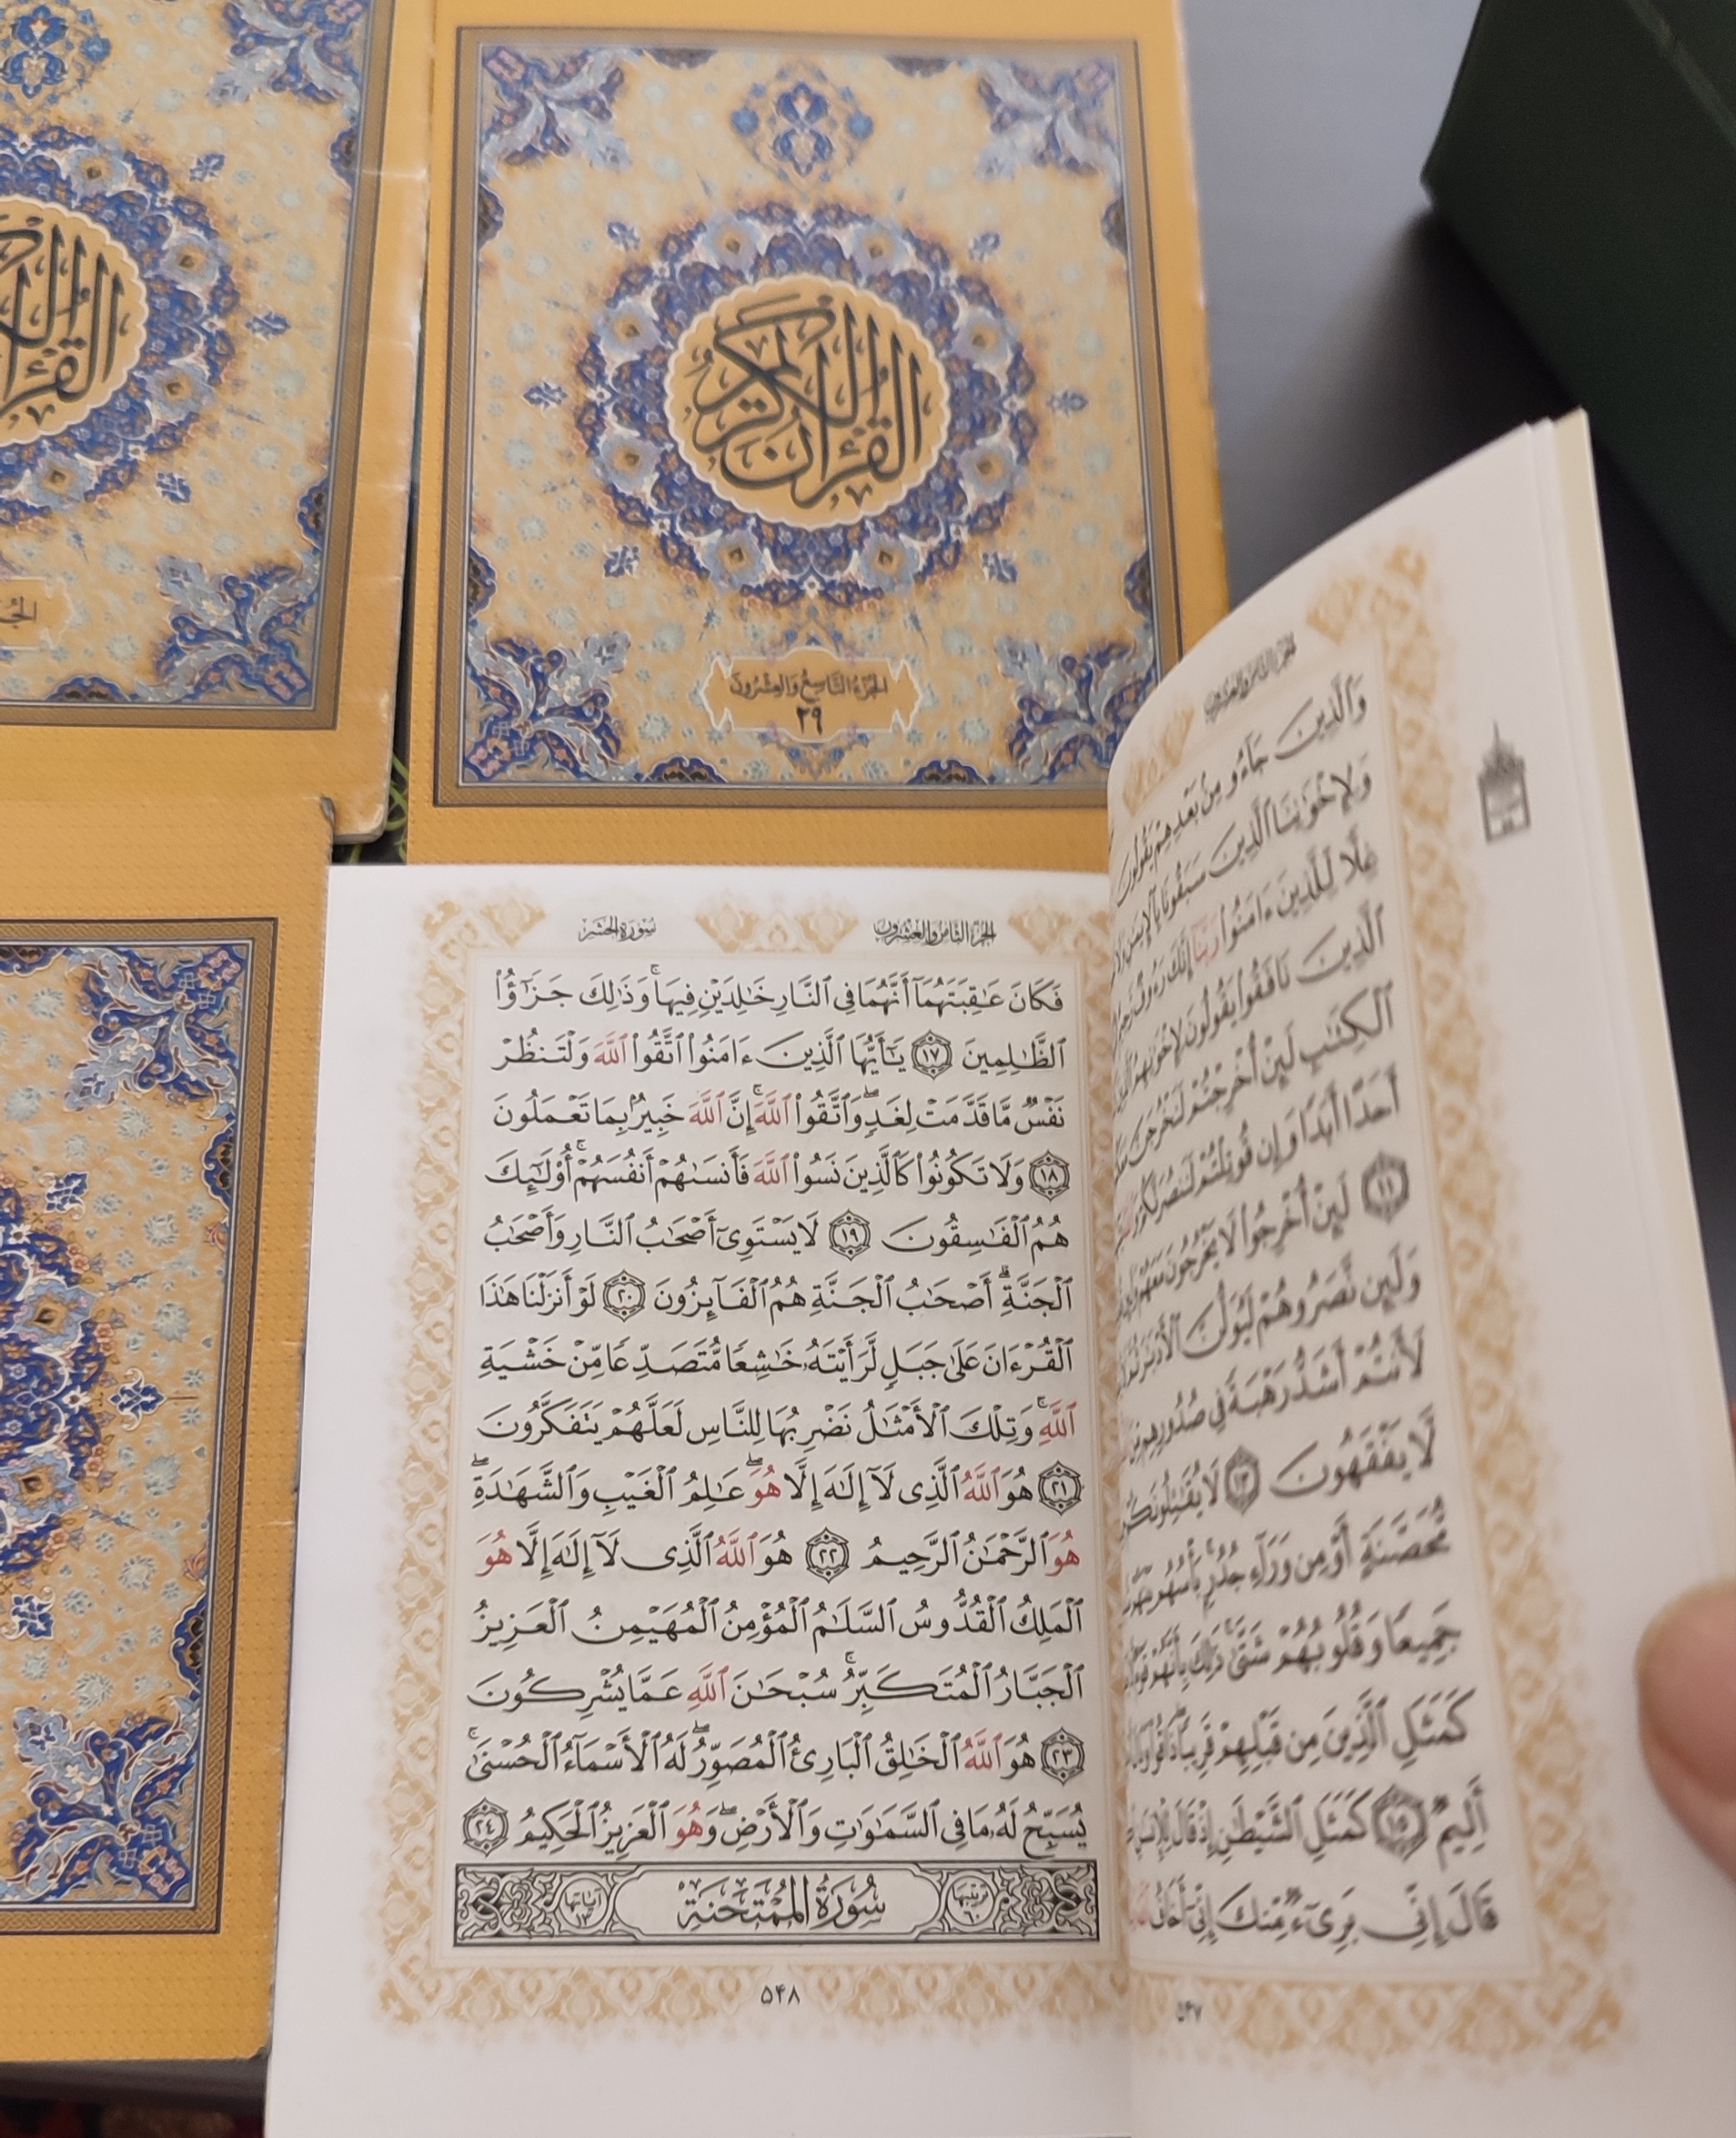 القرآن الكريم
الجزء التاسع والعشرون
٢٩
القرآن
الجزء الثامن والعشرون
سورة الحشر
فَكَانَ عَٰقِبَتَهُمَآ أَنَّهُمَا فِى ٱلنَّارِ خَٰلِدَيْنِ فِيهَا ۚ وَذَٰلِكَ جَزَٰٓؤُا۟
ٱلظَّٰلِمِينَ ﴿١٧﴾ يَٰٓأَيُّهَا ٱلَّذِينَ ءَامَنُوا۟ ٱتَّقُوا۟ ٱللَّهَ وَلْتَنظُرْ
نَفْسٌ مَّا قَدَّمَتْ لِغَدٍ ۖ وَٱتَّقُوا۟ ٱللَّهَ ۚ إِنَّ ٱللَّهَ خَبِيرٌۢ بِمَا تَعْمَلُونَ
﴿١٨﴾ وَلَا تَكُونُوا۟ كَٱلَّذِينَ نَسُوا۟ ٱللَّهَ فَأَنسَىٰهُمْ أَنفُسَهُمْ ۚ أُو۟لَٰٓئِكَ
هُمُ ٱلْفَٰسِقُونَ ﴿١٩﴾ لَا يَسْتَوِىٓ أَصْحَٰبُ ٱلنَّارِ وَأَصْحَٰبُ
ٱلْجَنَّةِ ۚ أَصْحَٰبُ ٱلْجَنَّةِ هُمُ ٱلْفَآئِزُونَ ﴿٢٠﴾ لَوْ أَنزَلْنَا هَٰذَا
ٱلْقُرْءَانَ عَلَىٰ جَبَلٍ لَّرَأَيْتَهُۥ خَٰشِعًا مُّتَصَدِّعًا مِّنْ خَشْيَةِ
ٱللَّهِ ۚ وَتِلْكَ ٱلْأَمْثَٰلُ نَضْرِبُهَا لِلنَّاسِ لَعَلَّهُمْ يَتَفَكَّرُونَ
﴿٢١﴾ هُوَ ٱللَّهُ ٱلَّذِى لَآ إِلَٰهَ إِلَّا هُوَ ۖ عَٰلِمُ ٱلْغَيْبِ وَٱلشَّهَٰدَةِ ۖ
هُوَ ٱلرَّحْمَٰنُ ٱلرَّحِيمُ ﴿٢٢﴾ هُوَ ٱللَّهُ ٱلَّذِى لَآ إِلَٰهَ إِلَّا هُوَ
ٱلْمَلِكُ ٱلْقُدُّوسُ ٱلسَّلَٰمُ ٱلْمُؤْمِنُ ٱلْمُهَيْمِنُ ٱلْعَزِيزُ
ٱلْجَبَّارُ ٱلْمُتَكَبِّرُ ۚ سُبْحَٰنَ ٱللَّهِ عَمَّا يُشْرِكُونَ
﴿٢٣﴾ هُوَ ٱللَّهُ ٱلْخَٰلِقُ ٱلْبَارِئُ ٱلْمُصَوِّرُ ۖ لَهُ ٱلْأَسْمَآءُ ٱلْحُسْنَىٰ ۚ
يُسَبِّحُ لَهُۥ مَا فِى ٱلسَّمَٰوَٰتِ وَٱلْأَرْضِ ۖ وَهُوَ ٱلْعَزِيزُ ٱلْحَكِيمُ ﴿٢٤﴾
ترتيبها ٦٠ سُورَةُ المُمْتَحنَة آياتها ١٣
۵۴۸
الجزء الثامن والعشرون
وَٱلَّذِينَ جَآءُو مِنۢ بَعْدِهِمْ يَقُولُونَ
وَلِإِخْوَٰنِنَا ٱلَّذِينَ سَبَقُونَا بِٱلْإِيمَٰنِ
غِلًّا لِّلَّذِينَ ءَامَنُوا۟ رَبَّنَآ إِنَّكَ رَءُوفٌ
ٱلَّذِينَ نَافَقُوا۟ يَقُولُونَ لِإِخْوَٰنِهِمُ
ٱلْكِتَٰبِ لَئِنْ أُخْرِجْتُمْ لَنَخْرُجَنَّ
أَحَدًا أَبَدًا وَإِن قُوتِلْتُمْ لَنَنصُرَنَّكُمْ
﴿١١﴾ لَئِنْ أُخْرِجُوا۟ لَا يَخْرُجُونَ مَعَهُمْ
وَلَئِن نَّصَرُوهُمْ لَيُوَلُّنَّ ٱلْأَدْبَٰرَ
لَأَنتُمْ أَشَدُّ رَهْبَةً فِى صُدُورِهِم
لَّا يَفْقَهُونَ ﴿١٣﴾ لَا يُقَٰتِلُونَكُمْ
مُّحَصَّنَةٍ أَوْ مِن وَرَآءِ جُدُرٍۭ ۚ بَأْسُهُم
جَمِيعًا وَقُلُوبُهُمْ شَتَّىٰ ۚ ذَٰلِكَ بِأَنَّهُمْ
كَمَثَلِ ٱلَّذِينَ مِن قَبْلِهِمْ قَرِيبًا ۖ ذَاقُوا۟
أَلِيمٌ ﴿١٥﴾ كَمَثَلِ ٱلشَّيْطَٰنِ إِذْ قَالَ
قَالَ إِنِّى بَرِىٓءٌ مِّنكَ إِنِّىٓ أَخَافُ
۵۴۷